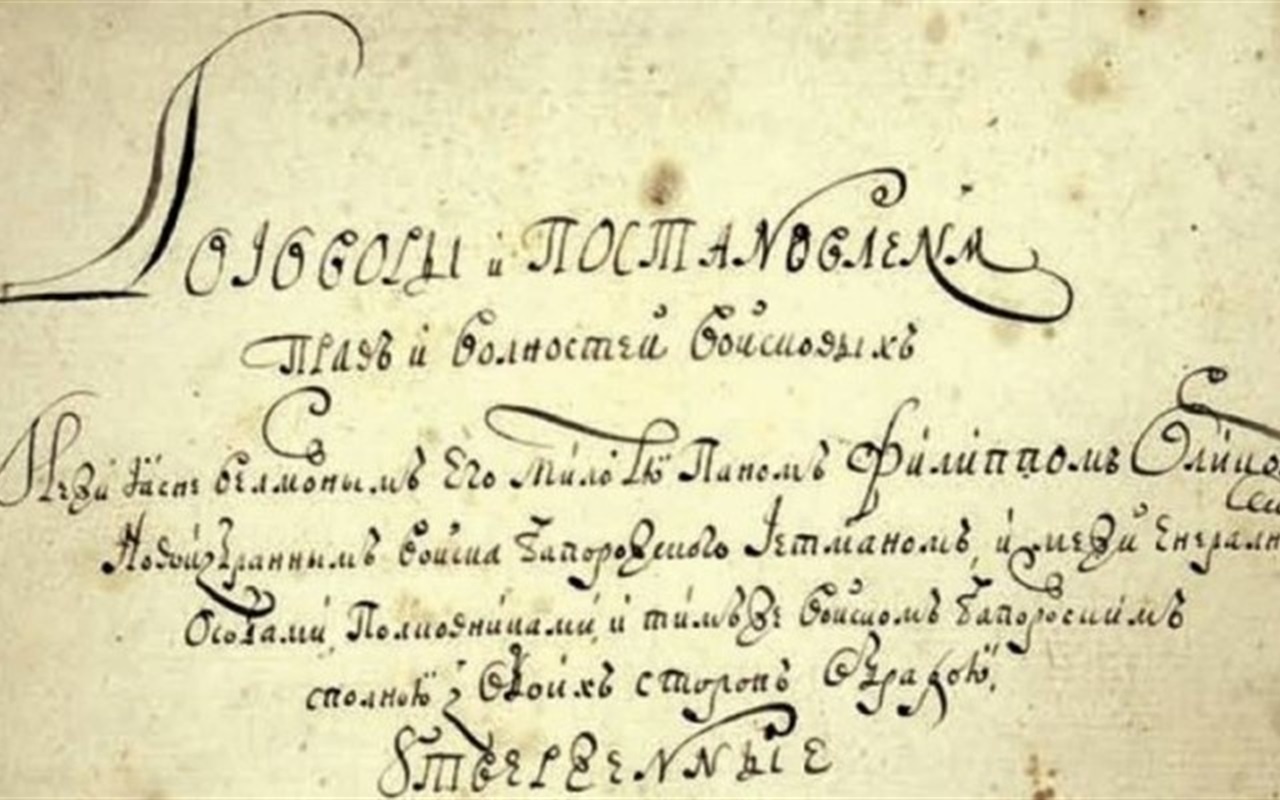 Договоры и ПОСТАНОВЛЕНѦ
Правъ и волностей войсковыхъ
Межи Ясне велможнымъ Его Милостю Паномъ Филиппомъ
Новоизбраннымъ войска Запорожского Гетманомъ, и межи
Особами, Полковниками, и тимъже войскомъ Запорозскимъ
сполною з обоихъ сторонъ обрадою,
Утверженные